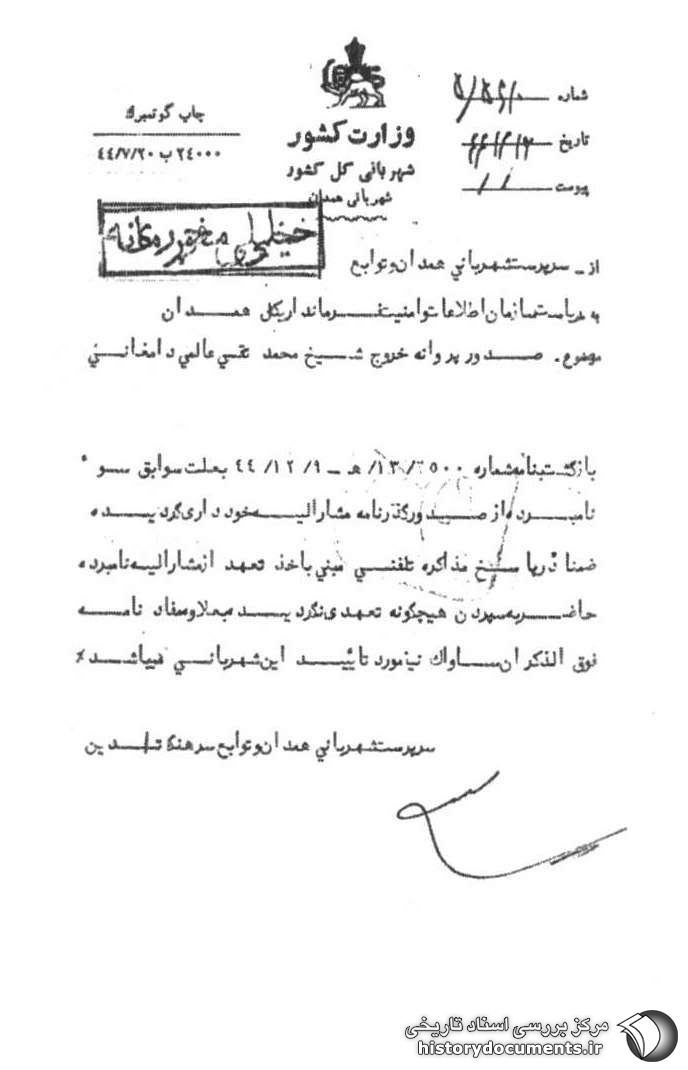 شماره
تاریخ
پیوست
وزارت کشور
شهربانی کل کشور
شهربانی همدان
چاپ گوتمبرک
۲٤۰۰۰ ب ٤٤/۷/۲۰
خیلی محرمانه
از ـ سرپرست شهرباني همدان و توابع
به ریاست سازمان اطلاعات و امنیت فرمانداریکل همدان
موضوع . صدور پروانه خروج شیخ محمد تقي عالمي دامغاني
بازگشت بنامه شماره ۲۵۰۰/۱۳/ هـ ـ ۹/ ۱۲/ ٤٤ بعلت سوابق سو ء
نامبرده از صدور گذرنامه مشارالیه خودداری گردیده
ضمنا در پاسخ مذاکره تلفني مبني باخذ تعهد از مشارالیه نامبرده
حاضر به سپردن هیچگونه تعهدی نگردیده بعلاوه مفاد نامه
فوق الذکر ان ساواك نیز مورد تایید این شهرباني میباشد ٪
سرپرست شهرباني همدان و توابع سرهنگ
مرکز بررسی اسناد تاریخی
historydocuments.ir